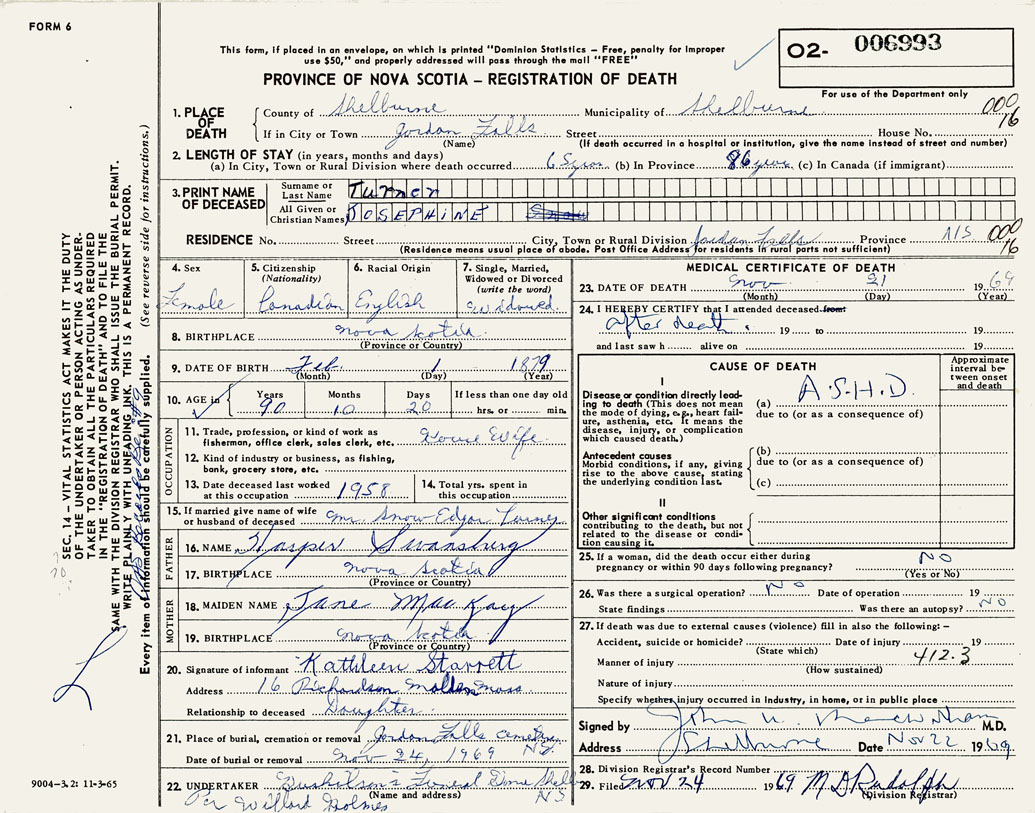 FORM 6
This form, if placed in an envelope, on which is printed "Dominion Statistics — Free, penalty for improper
use $50," and properly addressed will pass through the mail "FREE"
PROVINCE OF NOVA SCOTIA — REGISTRATION OF DEATH
O2- 006993
For use of the Department only
1. PLACE OF DEATH County of Shelburne Municipality of Shelburne 000 16
If in City or Town Jordan Falls Street House No.
(Name) (If death occurred in a hospital or institution, give the name instead of street and number)
2. LENGTH OF STAY (in years, months and days)
(a) In City, Town or Rural Division where death occurred 65 yrs (b) In Province 86 years (c) In Canada (if immigrant)
3. PRINT NAME OF DECEASED Surname or Last Name Turner
All Given or Christian Names JOSEPHINE
RESIDENCE No. Street City, Town or Rural Division Jordan Falls Province N/S 000 16
(Residence means usual place of abode. Post Office Address for residents in rural parts not sufficient)
4. Sex Female
5. Citizenship (Nationality) Canadian
6. Racial Origin English
7. Single, Married, Widowed or Divorced (write the word) Widowed
8. BIRTHPLACE Nova Scotia
(Province or Country)
9. DATE OF BIRTH Feb. 1 1879
(Month) (Day) (Year)
10. AGE in Years 90 Months 10 Days 20 If less than one day old hrs. or min.
OCCUPATION
11. Trade, profession, or kind of work as fisherman, office clerk, sales clerk, etc. House Wife
12. Kind of industry or business, as fishing, bank, grocery store, etc.
13. Date deceased last worked at this occupation 1958
14. Total yrs. spent in this occupation
15. If married give name of wife or husband of deceased Mr. Snow-Edgar Turner
FATHER
16. NAME Harper Swansburg
17. BIRTHPLACE Nova Scotia
(Province or Country)
MOTHER
18. MAIDEN NAME Jane MacKay
19. BIRTHPLACE Nova Scotia
(Province or Country)
20. Signature of informant Kathleen Starrett
Address 16 Richardson Malden Mass
Relationship to deceased Daughter
21. Place of burial, cremation or removal Jordan Falls Cemetery N.S.
Date of burial or removal Nov 24, 1969
22. UNDERTAKER Funeral Home N S
(Name and address)
Per Willard Holmes
MEDICAL CERTIFICATE OF DEATH
23. DATE OF DEATH Nov 21 1969
(Month) (Day) (Year)
24. I HEREBY CERTIFY that I attended deceased from
after death. 19 to 19
and last saw h alive on 19
CAUSE OF DEATH
Approximate interval between onset and death
I
Disease or condition directly leading to death (This does not mean the mode of dying, e.g., heart failure, asthenia, etc. It means the disease, injury, or complication which caused death.)
(a) A.S.H.D
due to (or as a consequence of)
Antecedent causes
Morbid conditions, if any, giving rise to the above cause, stating the underlying condition last.
(b)
due to (or as a consequence of)
(c)
II
Other significant conditions
contributing to the death, but not related to the disease or condition causing it.
25. If a woman, did the death occur either during pregnancy or within 90 days following pregnancy? NO
(Yes or No)
26. Was there a surgical operation? NO Date of operation 19
State findings Was there an autopsy? NO
27. If death was due to external causes (violence) fill in also the following: —
Accident, suicide or homicide? Date of injury 19
(State which) 412.3
Manner of injury
(How sustained)
Nature of injury
Specify whether injury occurred in industry, in home, or in public place
Signed by John M.D.
Address Shelburne Date Nov 22 1969.
28. Division Registrar's Record Number
29. Filed Nov 24 1969 M D Rudolph
(Division Registrar)
SEC. 14 – VITAL STATISTICS ACT MAKES IT THE DUTY
OF THE UNDERTAKER OR PERSON ACTING AS UNDER-
TAKER TO OBTAIN ALL THE PARTICULARS REQUIRED
IN THE "REGISTRATION OF DEATH" AND TO FILE THE
SAME WITH THE DIVISION REGISTRAR WHO SHALL ISSUE THE BURIAL PERMIT.
WRITE PLAINLY WITH UNFADING INK. THIS IS A PERMANENT RECORD.
Every item of information should be carefully supplied. (See reverse side for instructions.)
9004-3.2: 11-3-65